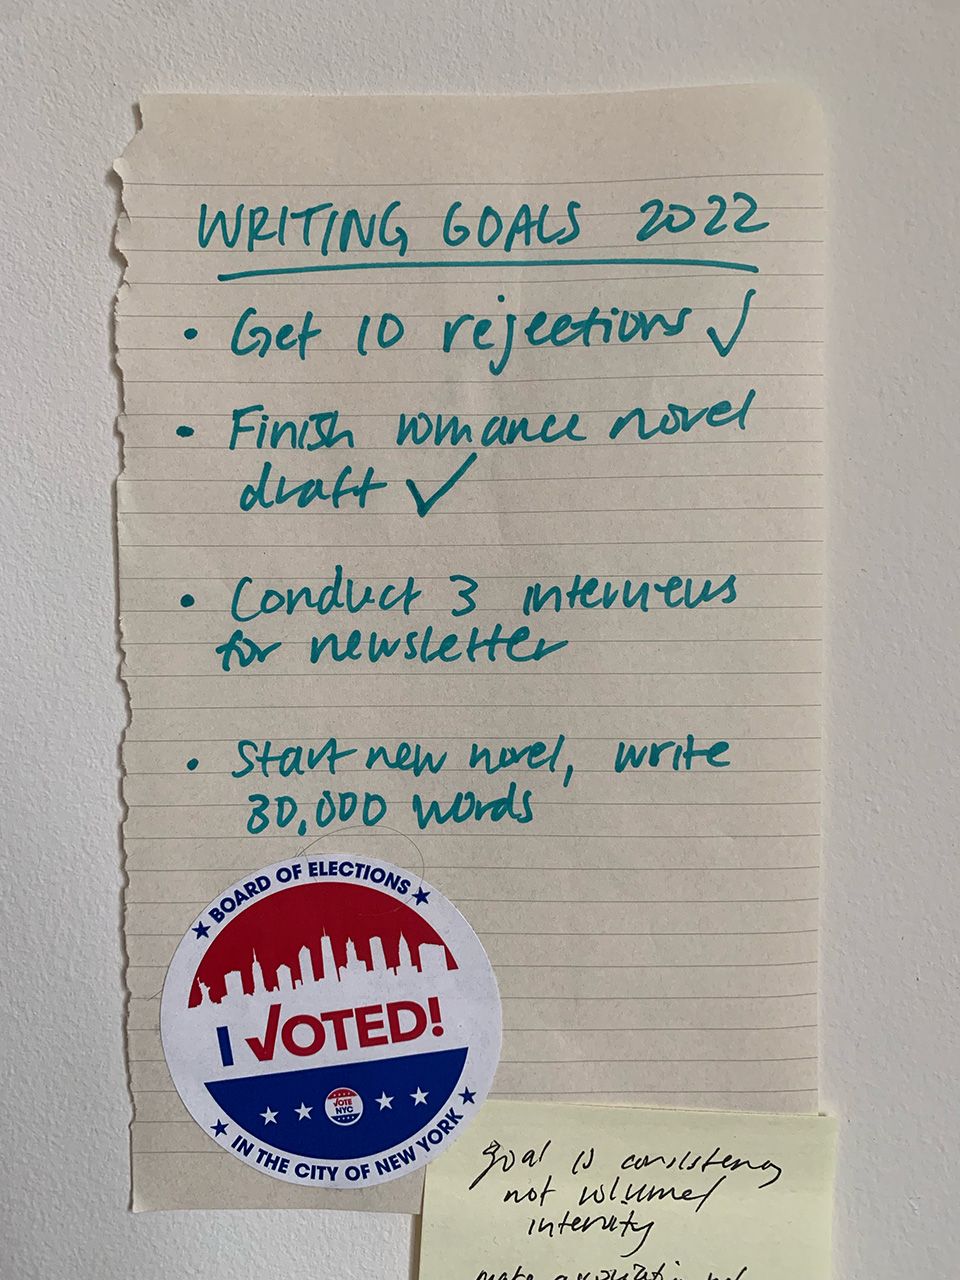 WRITING GOALS 2022
• Get 10 rejections ✓
• Finish romance novel
draft ✓
• Conduct 3 interviews
for newsletter
• Start new novel, write
30,000 words
★ BOARD OF ELECTIONS ★
I VOTED!
VOTE
NYC
★ IN THE CITY OF NEW YORK ★
goal is consistency
not volume/
intensity
make